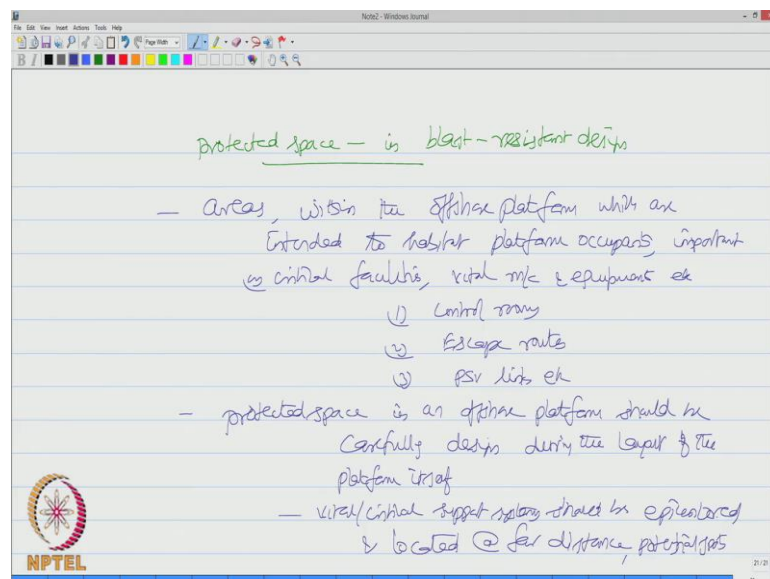 Note2 - Windows Journal
File Edit View Insert Actions Tools Help
Page Width
B I
protected space — in blast-resistant design
— areas, within the offshore platform which are
intended to habitat platform occupants, important
(or) critical facilities, vital m/c & equipments etc
(1) Control rooms
(2) Escape routes
(3) PSV links etc
— protected space in an offshore platform should be
carefully design during the layout of the
platform itself
— vital/critical support systems should be
& located @ far distance, potential spots
NPTEL
21/21